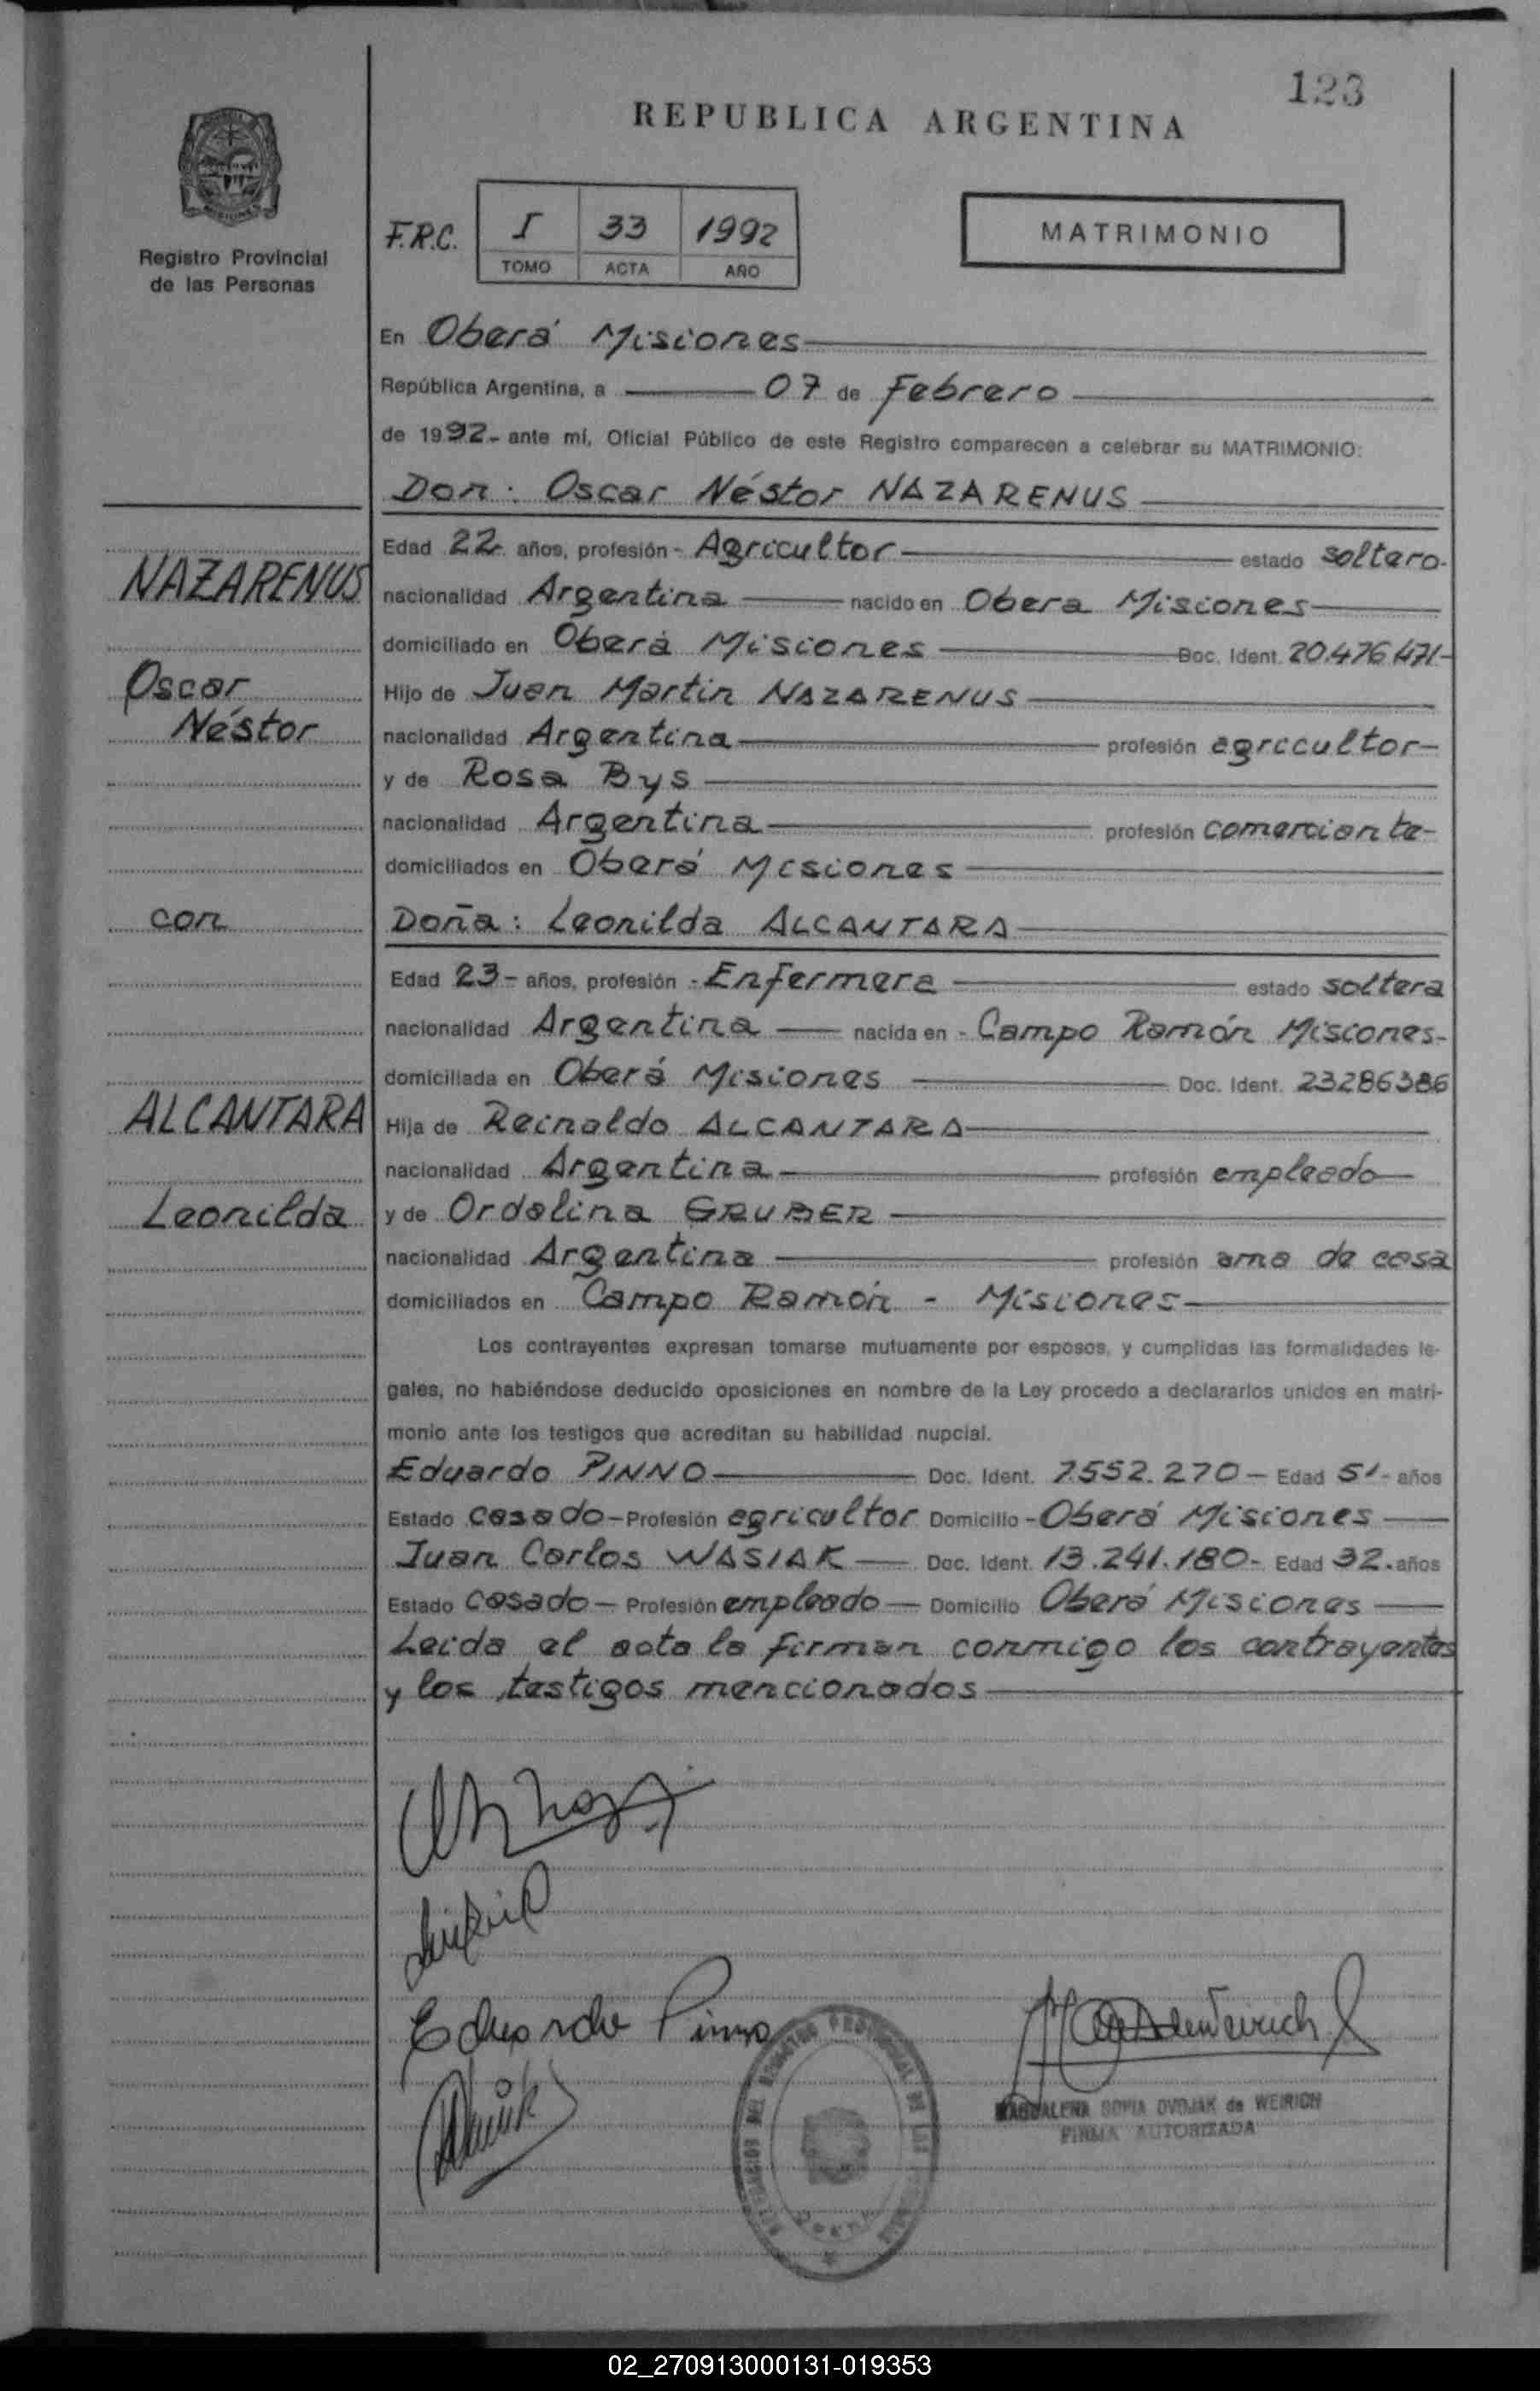 123
REPUBLICA ARGENTINA
Registro Provincial
de las Personas
F.R.C.
I 33 1992
TOMO ACTA AÑO
MATRIMONIO
En Oberá Misiones
República Argentina, a 07 de Febrero
de 1992- ante mí, Oficial Público de este Registro comparecen a celebrar su MATRIMONIO:
Don: Oscar Néstor NAZARENUS
Edad 22 años, profesión - Agricultor estado soltero.
NAZARENUS
nacionalidad Argentina nacido en Obera Misiones
domiciliado en Oberá Misiones Doc. Ident. 20.476.471-
Oscar
Hijo de Juan Martin NAZARENUS
Néstor
nacionalidad Argentina profesión agricultor-
y de Rosa Bys
nacionalidad Argentina profesión comerciante-
domiciliados en Oberá Misiones
con
Doña: Leonilda ALCANTARA
Edad 23- años, profesión - Enfermera estado soltera
nacionalidad Argentina nacida en - Campo Ramón Misiones-
domiciliada en Oberá Misiones Doc. Ident. 23286386
ALCANTARA
Hija de Reinaldo ALCANTARA
nacionalidad Argentina profesión empleado
Leonilda
y de Ordolina GRUBER
nacionalidad Argentina profesión ama de casa
domiciliados en Campo Ramón - Misiones
Los contrayentes expresan tomarse mutuamente por esposos, y cumplidas las formalidades le-
gales, no habiéndose deducido oposiciones en nombre de la Ley procedo a declararlos unidos en matri-
monio ante los testigos que acreditan su habilidad nupcial.
Eduardo PINNO Doc. Ident. 7552.270- Edad 51- años
Estado casado - Profesión agricultor Domicilio - Oberá Misiones
Juan Carlos WASIAK Doc. Ident. 13.241.180- Edad 32. años
Estado casado - Profesión empleado - Domicilio Oberá Misiones
Leida el acta la firman conmigo los contrayentes
y los testigos mencionados
Eduardo Pinno
MAGDALENA SOFIA DVOJAK de WEIRICH
FIRMA AUTORIZADA
02_270913000131-019353